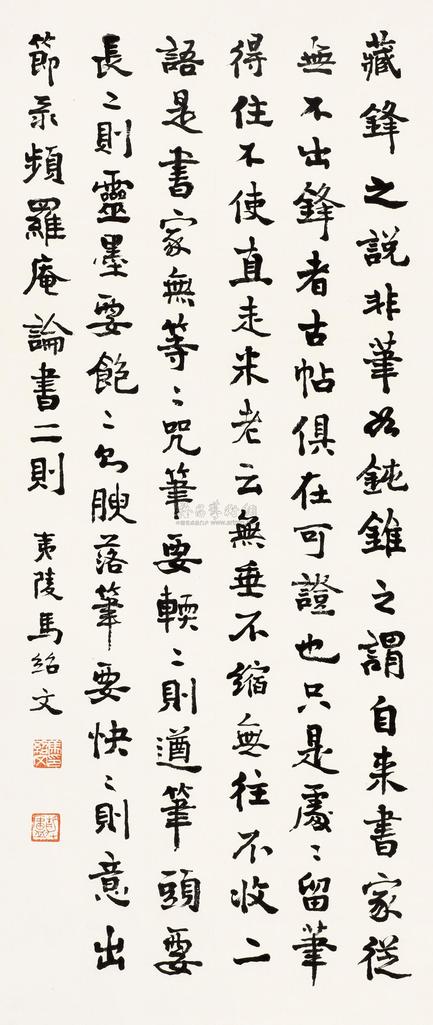 藏鋒之說非筆如鈍錐之謂自来書家從
無不出鋒者古帖俱在可證也只是處〻留筆
得住不使直走米老云無垂不縮無往不收二
語是書家無等〻咒筆要輭〻則遒筆頭要
長〻則靈墨要飽〻則腴落筆要快〻則意出
節录頻羅庵論書二則
夷陵馬紹文